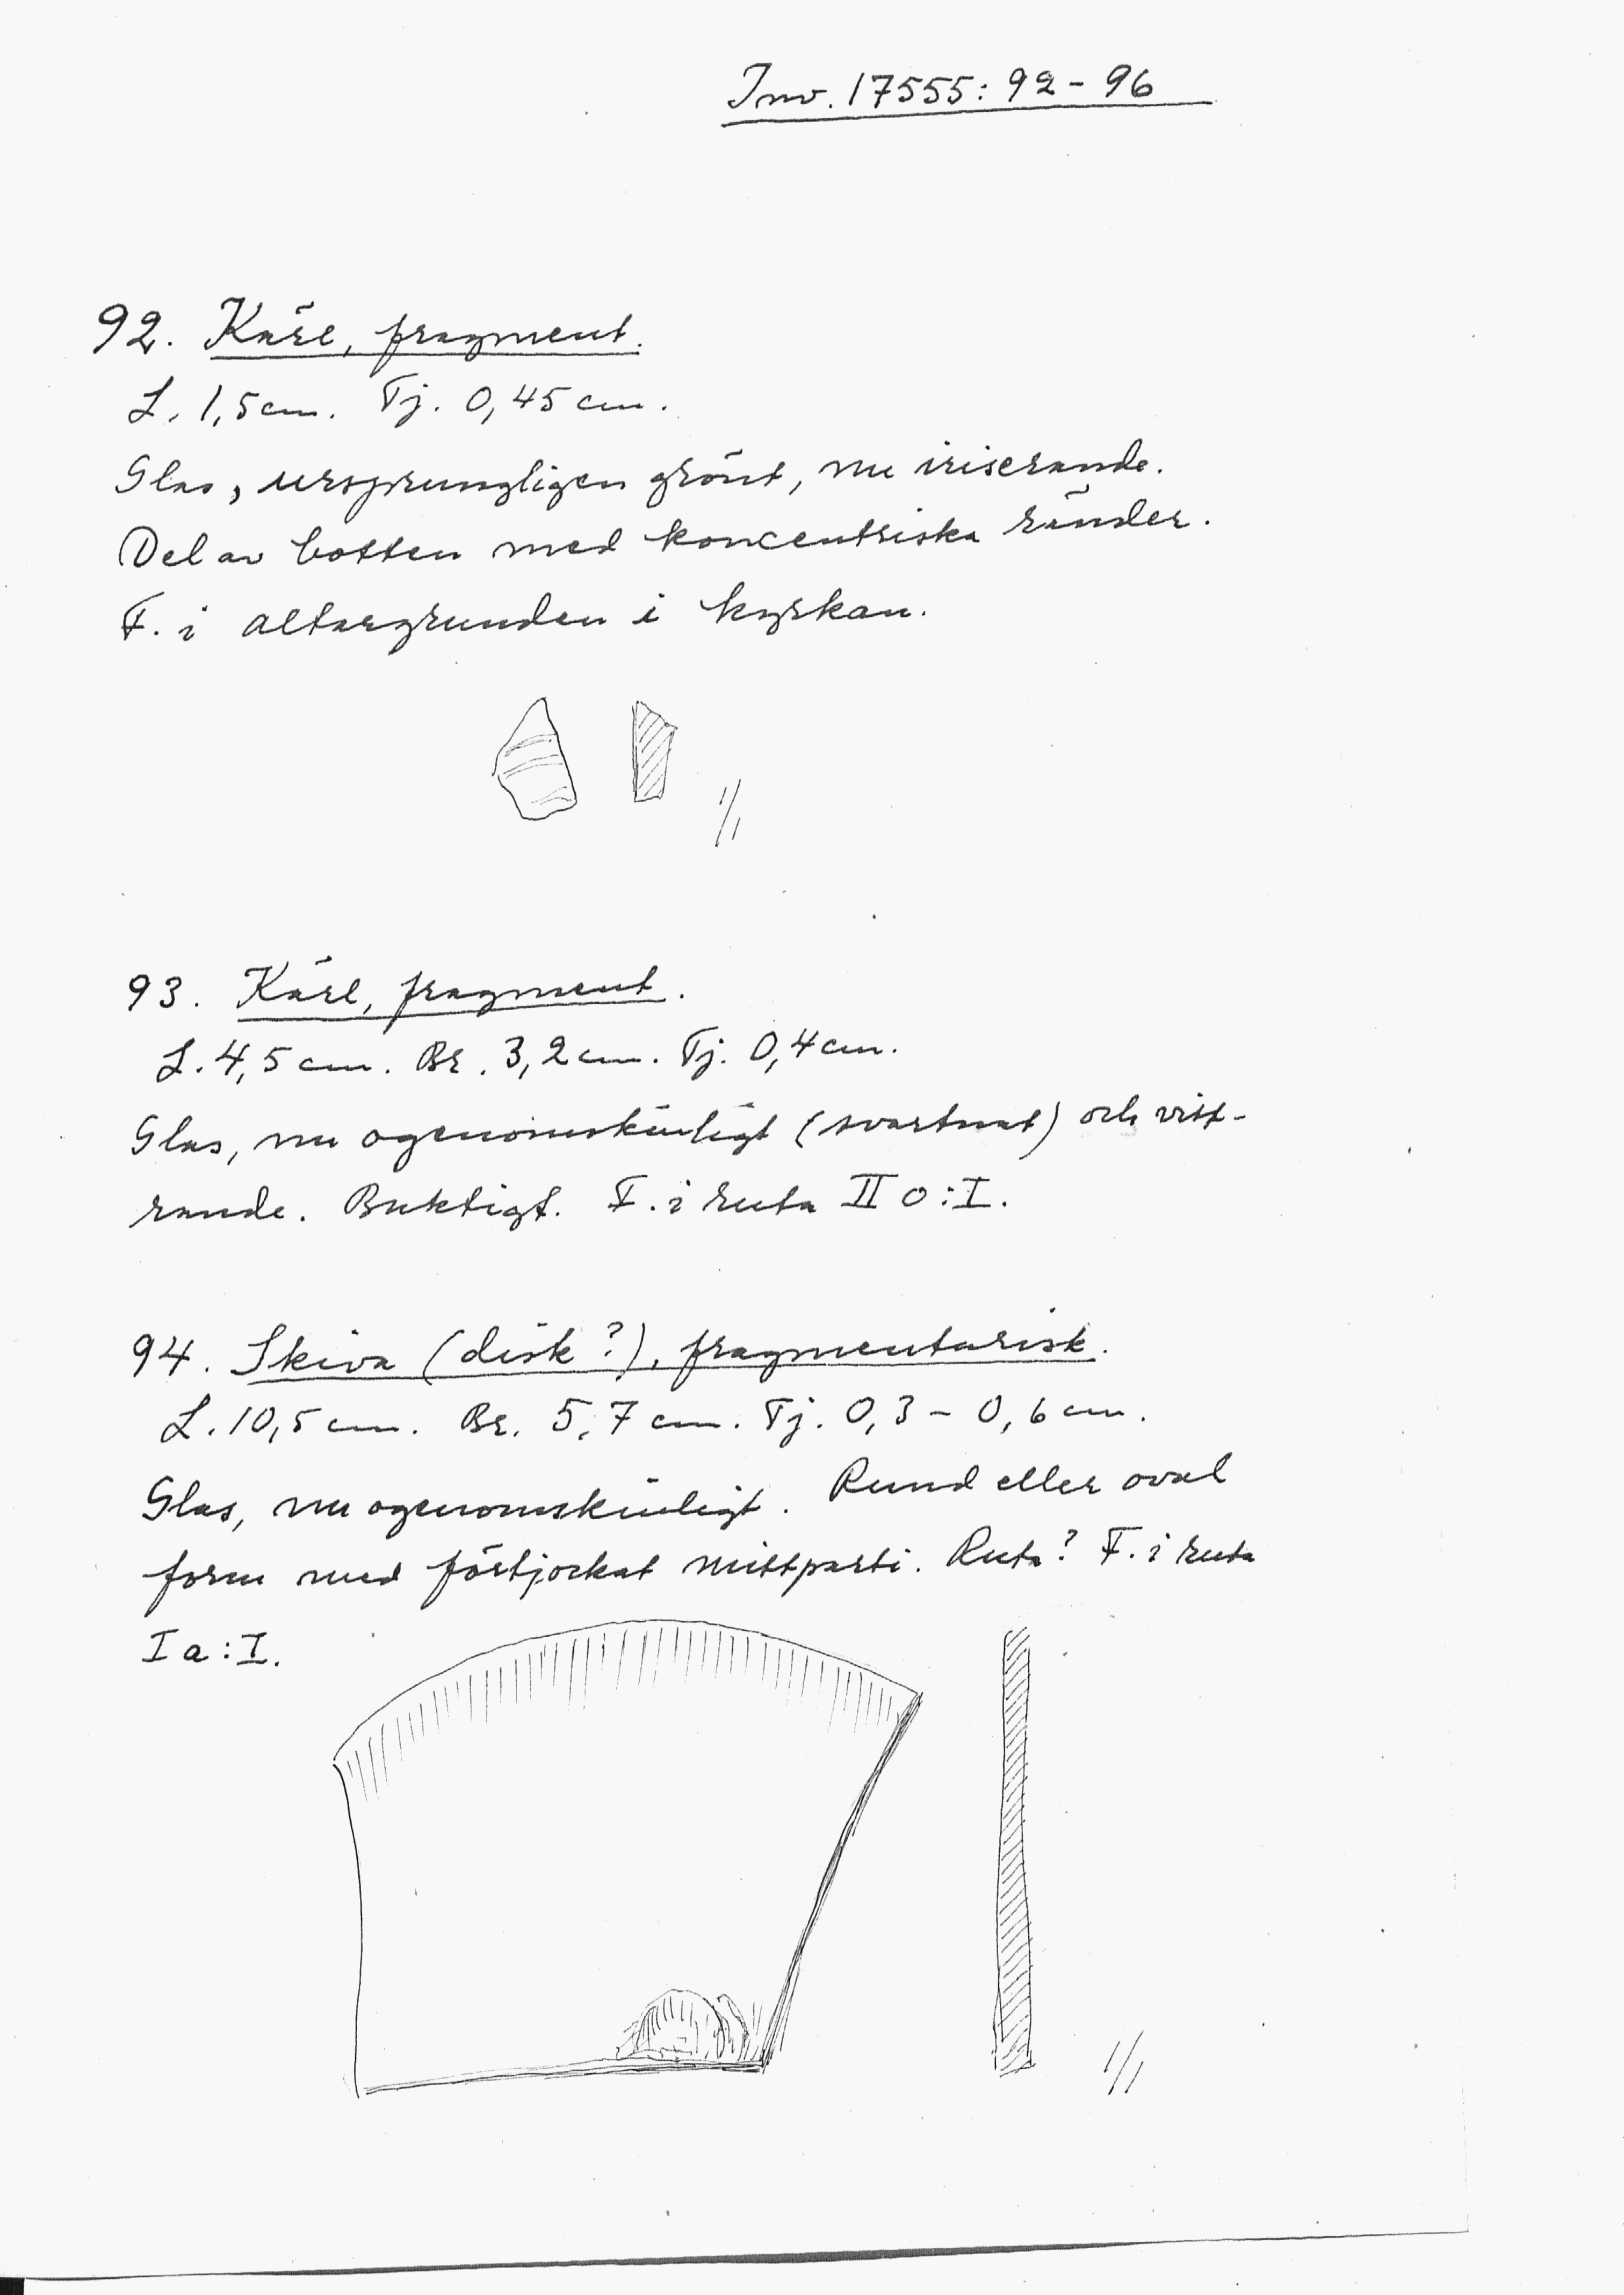 Inv. 17555: 92 - 96
92. Kärl, fragment.
L. 1,5 cm. Tj. 0,45 cm.
Glas, ursprungligen grönt, nu iriserande.
Del av botten med koncentriska ränder.
F. i altargrunden i kyrkan.
1/1
93. Kärl, fragment.
L. 4,5 cm. Br. 3,2 cm. Tj. 0,4 cm.
Glas, nu ogenomskinligt (svartnat) och vitt-
rande. Buktigt. F. i ruta II o:I.
94. Skiva (disk?), fragmentarisk.
L. 10,5 cm. Br. 5,7 cm. Tj. 0,3 - 0,6 cm.
Glas, nu ogenomskinligt. Rund eller oval
form med förtjockat mittparti. Ruta? F. i ruta
I a:I.
1/1